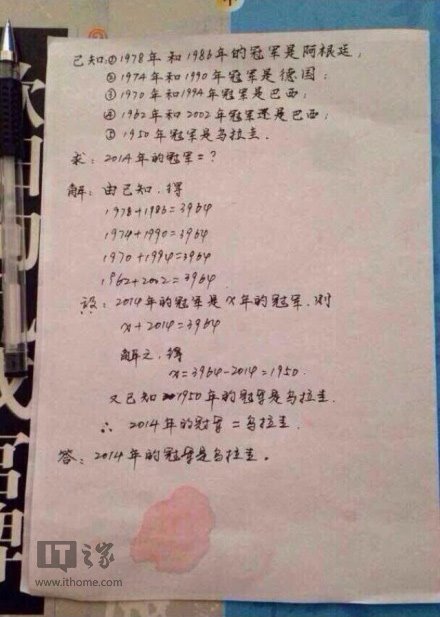 已知:①1978年和1986年的冠军是阿根廷;
②1974年和1990年冠军是德国;
③1970年和1994年冠军是巴西;
④1962年和2002年冠军还是巴西;
⑤1950年冠军是乌拉圭.
求:2014年的冠军=?
解:由已知,得
1978+1986=3964
1974+1990=3964
1970+1994=3964
1962+2002=3964
设:2014年的冠军是x年的冠军,则
x+2014=3964
解之,得
x=3964-2014=1950.
又已知1950年的冠军是乌拉圭.
∴ 2014年的冠军=乌拉圭.
答:2014年的冠军是乌拉圭。
IT之家
www.ithome.com